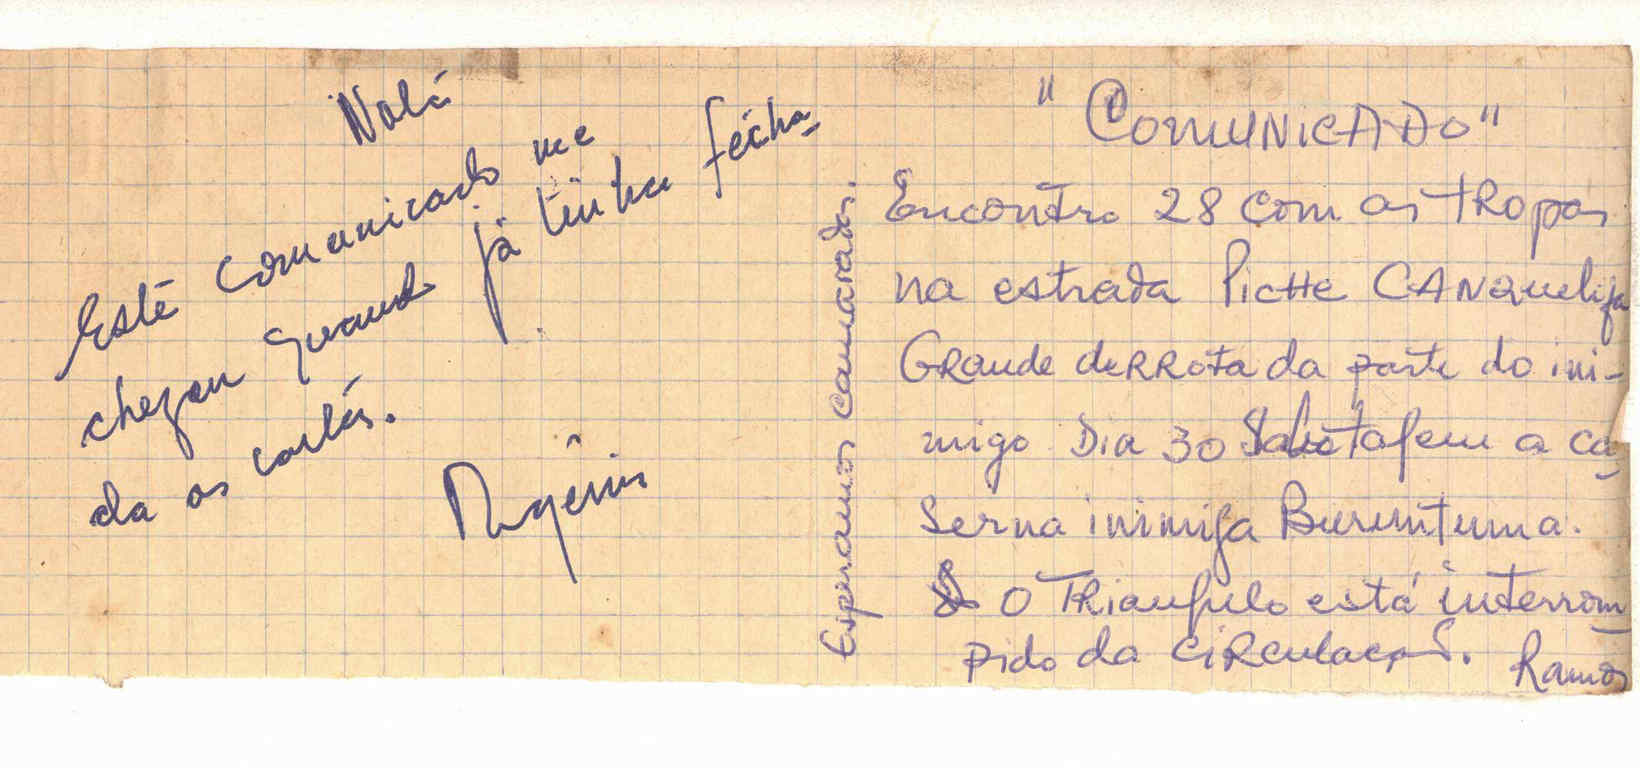 Nota
Este comunicado me
chegou quando já tinha fecha-
da as cartas.
Rogério
Esperamos camaradas.
"COMUNICADO"
Encontro 28 com as tropas
na estrada Piche CANquelifa
Grande derrota da parte do ini-
migo Dia 30 Sabotagem a ca-
serna inimiga Buruntuma.
O Triangulo está interrom-
pido da circulação. Ramos